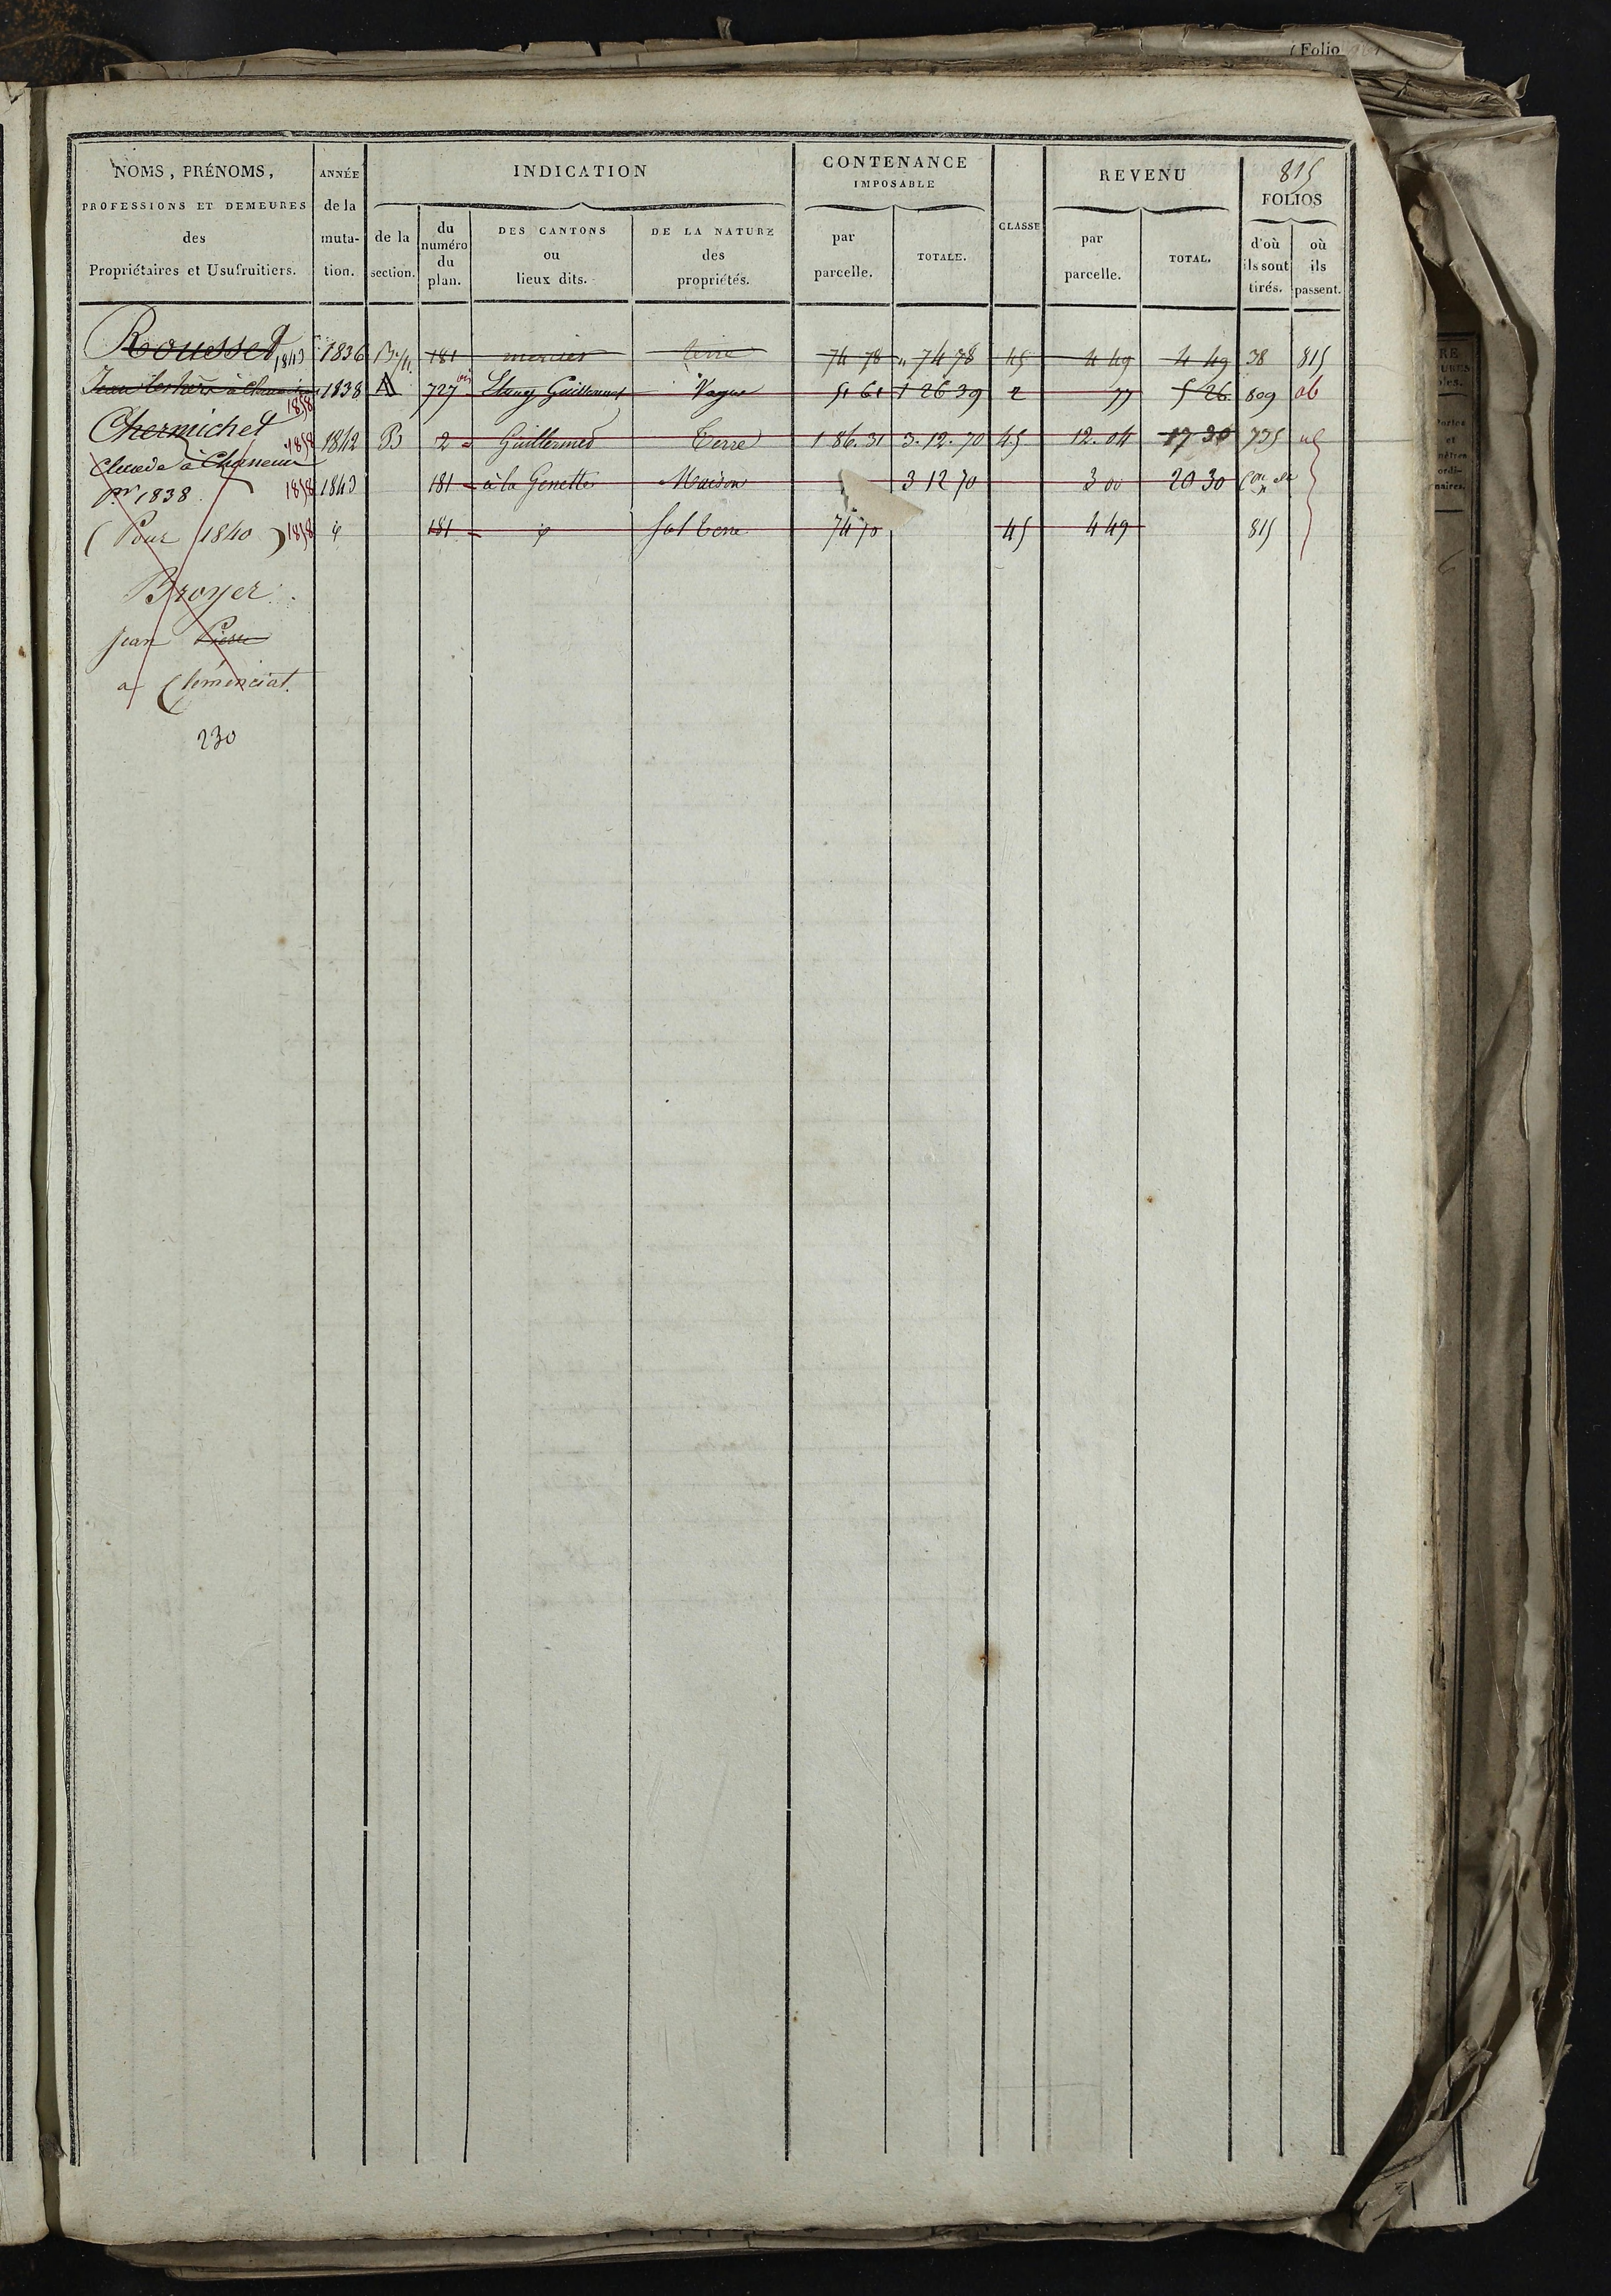 (Folio
815
NOMS, PRÉNOMS,
PROFESSIONS ET DEMEURES
des
Propriétaires et Usufruitiers.
ANNÉE
de la
muta-
tion.
INDICATION
de la
section.
du
numéro
du
plan.
DES CANTONS
ou
lieux dits.
DE LA NATURE
des
propriétés.
CONTENANCE
IMPOSABLE
par
parcelle.
TOTALE.
CLASSE
REVENU
par
parcelle.
TOTAL.
FOLIOS
d'où
ils sont
tirés.
où
ils
passent.
Rousset 1843 1836 181 mercier terre 74 78 74 78 45 4 49 4 49 38 815
Jean 1858 1838 A 727 Etang Guillermet Vague 51 61 1 26 39 2 77 5 26 809
Chermichet
1858 1842 B 2 Guillermet Terre 1 86. 31 3. 12. 70 45 12. 04 17 30 735
Claude à
pr 1838. 1858 1843 181 à la Genette Maison 3 12 70 3 00 20 30
(Pour 1840) 1858 181 sol terre 74 70 45 4 49 815
Broyer
Jean Pierre
a Clémenciat.
230